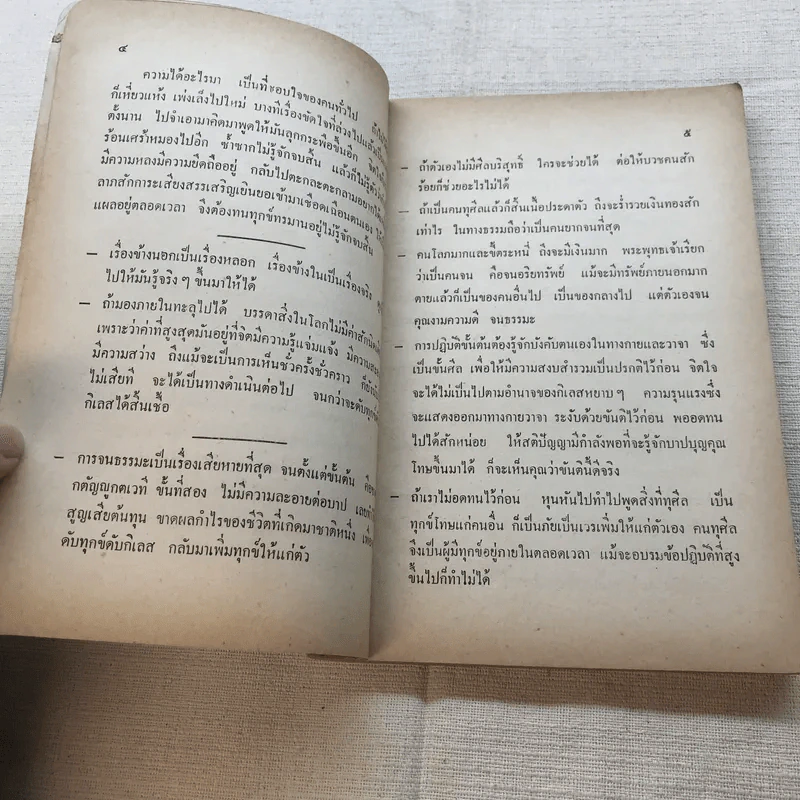 ๔
ความได้อะไรมา เป็นที่ชอบใจของคนทั่วไป
ก็เหี่ยวแห้ง เพ่งเล็งไปใหม่ บางทีเรื่องขัดใจที่ล่วงไปแล้ว
ตั้งนาน ไปจำเอามาคิดมาพูดให้มันลุกกระพือขึ้นอีก
ร้อนเศร้าหมองไปอีก ซ้ำซากไม่รู้จักจบสิ้น แล้วก็ไม่รู้
มีความหลงมีความยึดถืออยู่ กลับไปตะกละตะกลามอยาก
ลาภสักการะเสียงสรรเสริญเยินยอเข้ามาเชือดเฉือนตนเอง
แผลอยู่ตลอดเวลา จึงต้องทนทุกข์ทรมานอยู่ไม่รู้จักจบสิ้น
– เรื่องข้างนอกเป็นเรื่องหลอก เรื่องข้างในเป็นเรื่องจริง
ไปให้มันรู้จริง ๆ ขึ้นมาให้ได้
– ถ้ามองภายในทะลุไปได้ บรรดาสิ่งในโลกไม่มีค่าสัก
เพราะว่าค่าที่สูงสุดมันอยู่ที่จิตมีความรู้แจ่มแจ้ง มีความ
มีความสว่าง ถึงแม้จะเป็นการเห็นชั่วครั้งชั่วคราว ก็ยัง
ไม่เสียที จะได้เป็นทางดำเนินต่อไป จนกว่าจะดับทุกข์
กิเลสได้สิ้นเชื้อ
– การจนธรรมะเป็นเรื่องเสียหายที่สุด จนตั้งแต่ขั้นต้น คือ
กตัญญูกตเวที ขั้นที่สอง ไม่มีความละอายต่อบาป เลย
สูญเสียต้นทุน ขาดผลกำไรของชีวิตที่เกิดมาชาติหนึ่ง
ดับทุกข์ดับกิเลส กลับมาเพิ่มทุกข์ให้แก่ตัว
๕
– ถ้าตัวเองไม่มีศีลบริสุทธิ์ ใครจะช่วยได้ ต่อให้บวชคนสัก
ร้อยก็ช่วยอะไรไม่ได้
– ถ้าเป็นคนทุศีลแล้วก็สิ้นเนื้อประดาตัว ถึงจะร่ำรวยเงินทองสัก
เท่าไร ในทางธรรมถือว่าเป็นคนยากจนที่สุด
– คนโลภมากและขี้ตระหนี่ ถึงจะมีเงินมาก พระพุทธเจ้าเรียก
ว่าเป็นคนจน คือจนอริยทรัพย์ แม้จะมีทรัพย์ภายนอกมาก
ตายแล้วก็เป็นของคนอื่นไป เป็นของกลางไป แต่ตัวเองจน
คุณงามความดี จนธรรมะ
– การปฏิบัติขั้นต้นต้องรู้จักบังคับตนเองในทางกายและวาจา ซึ่ง
เป็นขั้นศีล เพื่อให้มีความสงบสำรวมเป็นปรกติไว้ก่อน จิตใจ
จะได้ไม่เป็นไปตามอำนาจของกิเลสหยาบ ๆ ความรุนแรงซึ่ง
จะแสดงออกมาทางกายวาจา ระงับด้วยขันติไว้ก่อน พออดทน
ไปได้สักหน่อย ให้สติปัญญามีกำลังพอที่จะรู้จักบาปบุญคุณ
โทษขึ้นมาได้ ก็จะเห็นคุณว่าขันตินี้ดีจริง
– ถ้าเราไม่อดทนไว้ก่อน หุนหันไปทำไปพูดสิ่งที่ทุศีล เป็น
ทุกข์โทษแก่คนอื่น ก็เป็นภัยเป็นเวรเพิ่มให้แก่ตัวเอง คนทุศีล
จึงเป็นผู้มีทุกข์อยู่ภายในตลอดเวลา แม้จะอบรมข้อปฏิบัติที่สูง
ขึ้นไปก็ทำไม่ได้